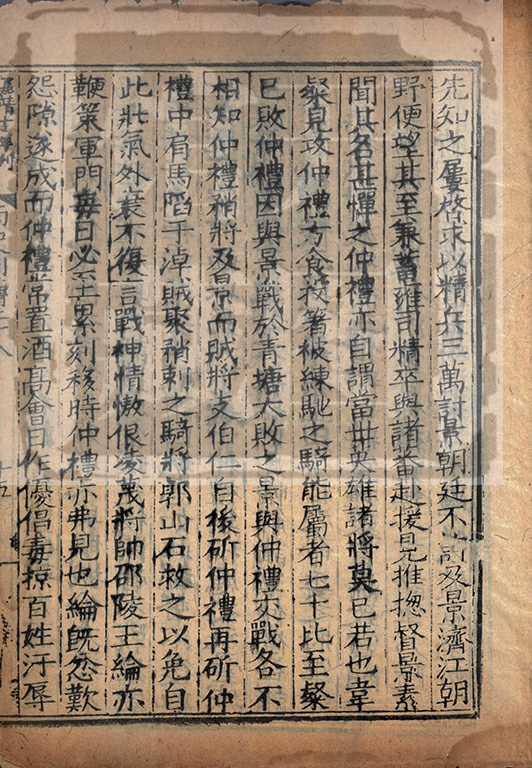 先知之屢啓求以精兵三萬討景朝廷不許及景濟江朝
野便望其至兼蓄雍司精卒與諸蕃赴援見推揔督景素
聞其名甚憚之仲禮亦自謂當世英雄諸將莫已若也韋
粲見攻仲禮方食投箸被練馳之騎能屬者七十比至粲
已敗仲禮因與景戰於青塘大敗之景與仲禮交戰各不
相知仲禮矟將及景而賊將支伯仁自後斫仲禮再斫仲
禮中肩馬陷于淖賊聚矟刺之騎將郭山石救之以免自
此壯氣外衰不復言戰神情慠佷凌蔑將帥邵陵王綸亦
鞭策軍門每日必至累刻移時仲禮亦弗見也綸旣忿歎
怨隙遂成而仲禮常置酒高會日作優倡毒掠百姓汙辱